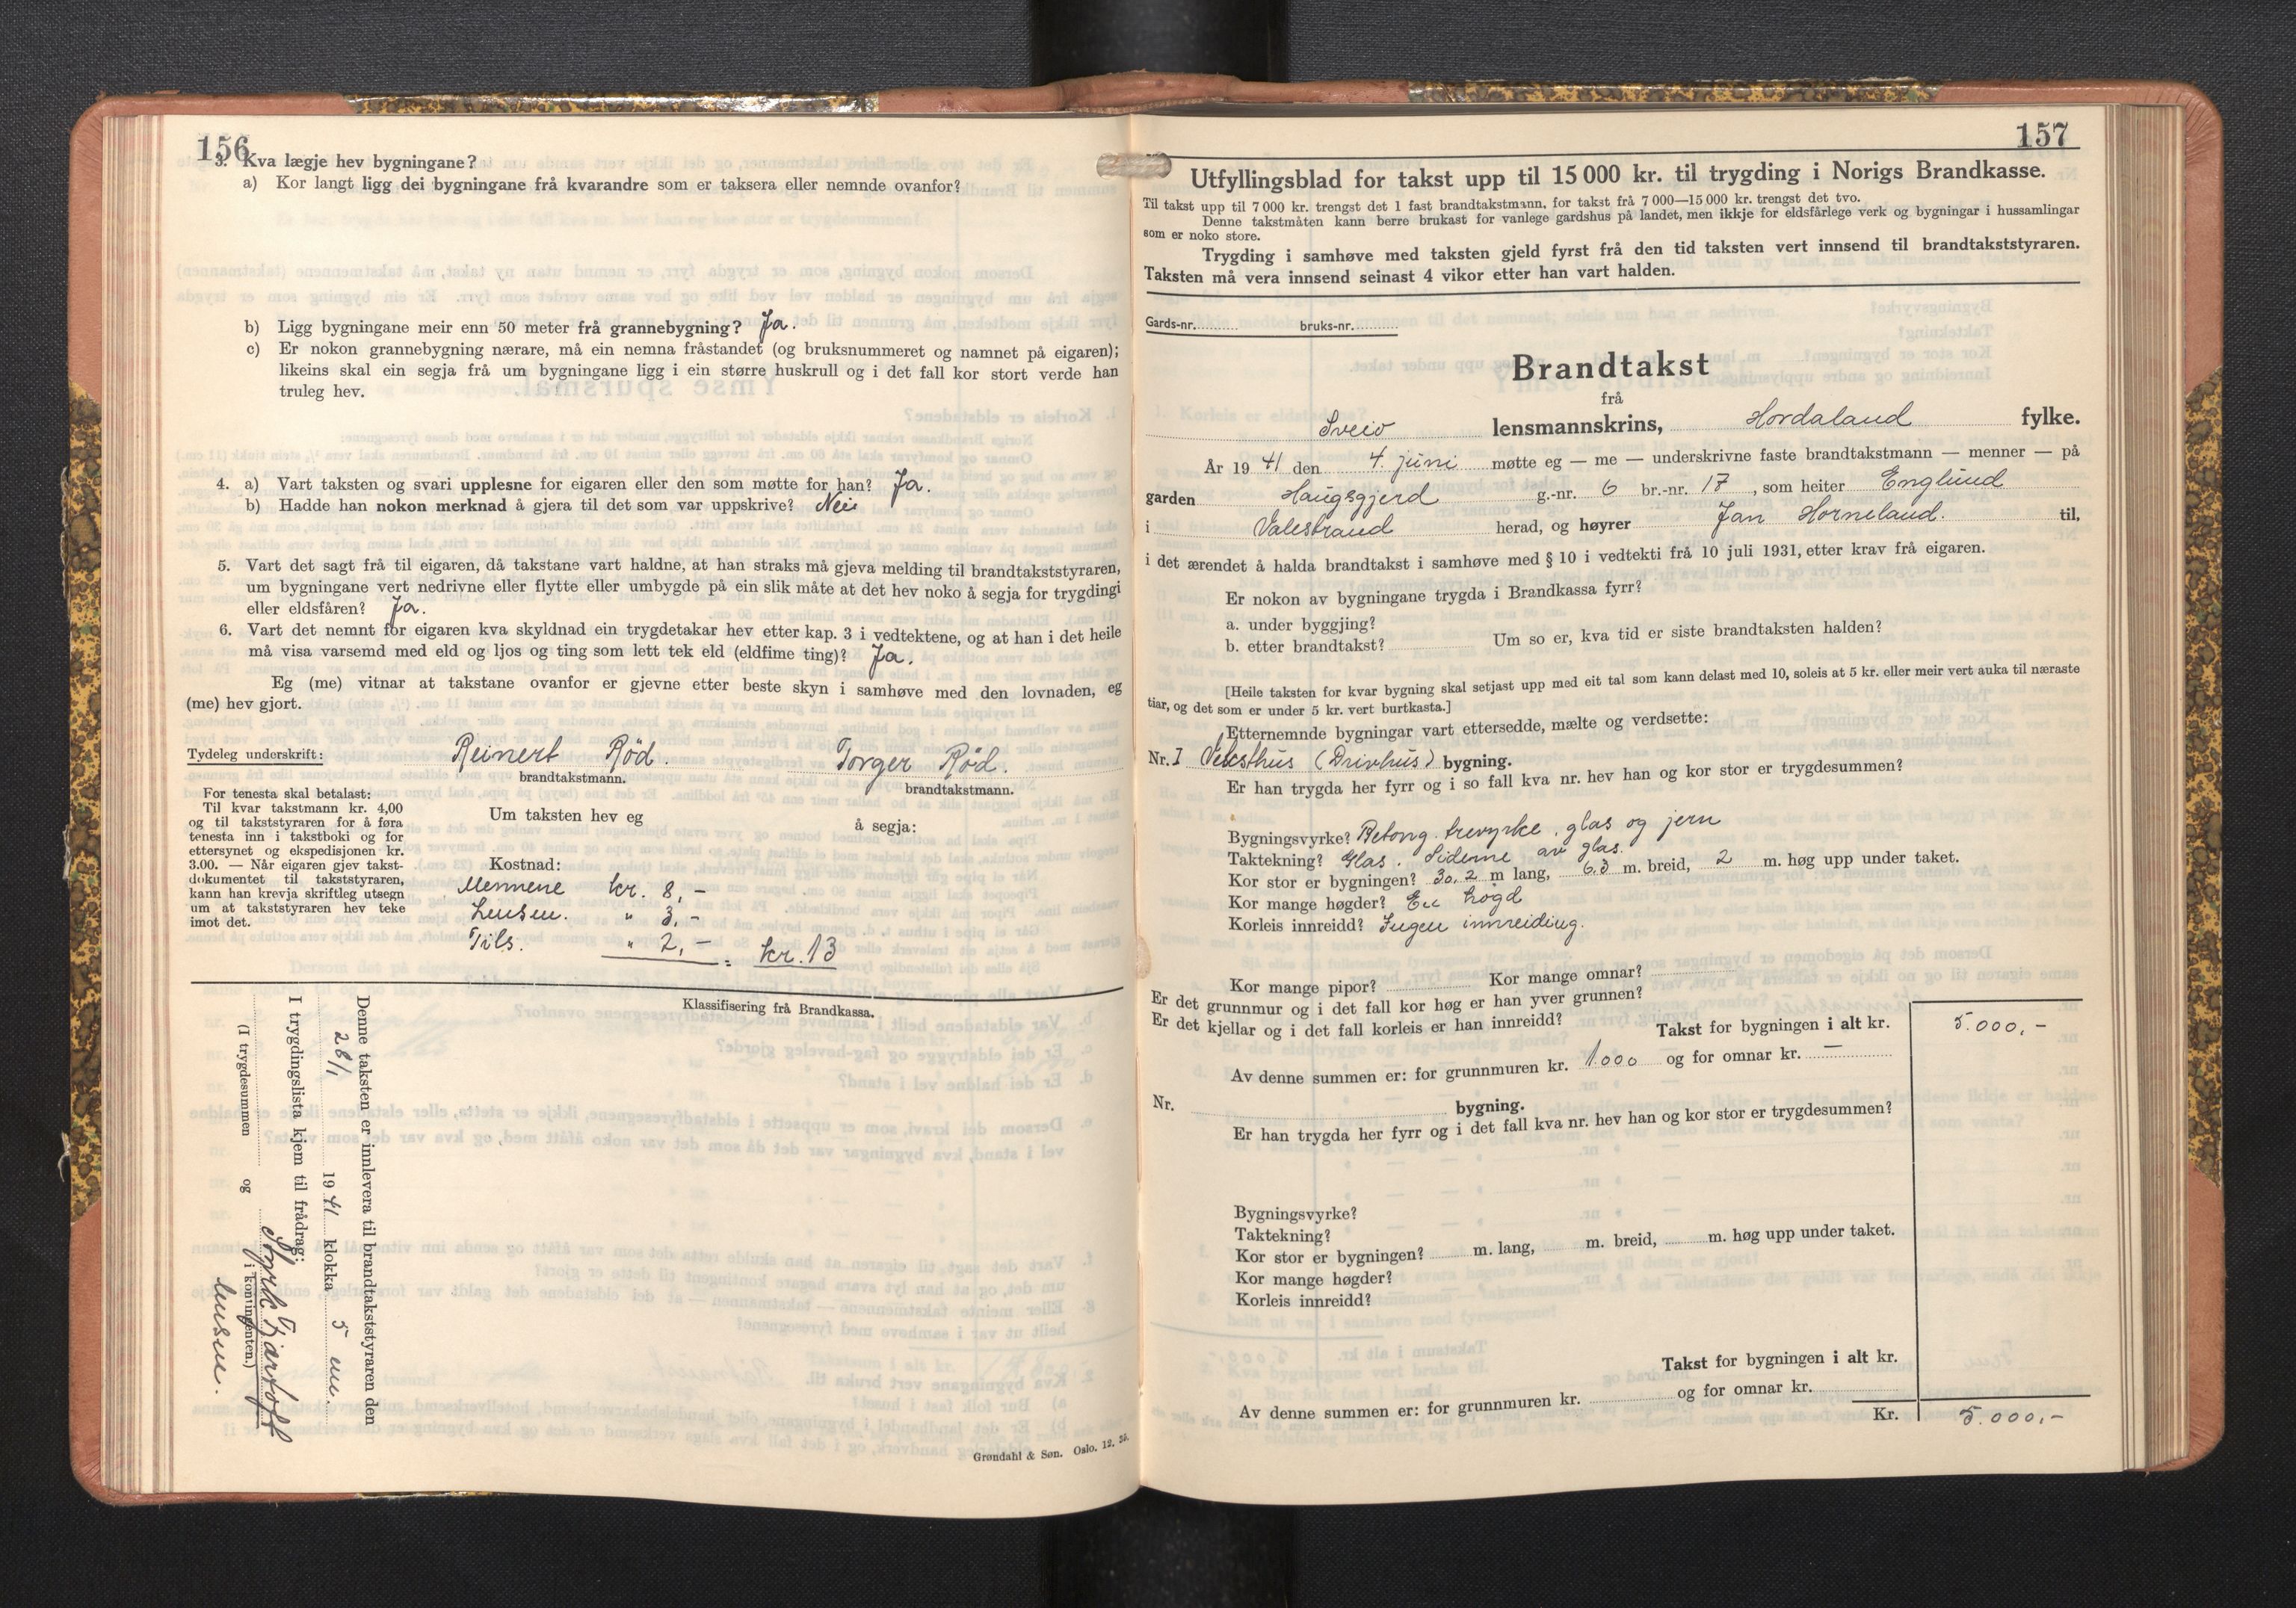 156
3. Kva lægje hev bygningane?
a) Kor langt ligg dei bygningane frå kvarandre som er taksera eller nemnde ovanfor?
b) Ligg bygningane meir enn 50 meter frå grannebygning? Ja.
c) Er nokon grannebygning nærare, må ein nemna fråstandet (og bruksnummeret og namnet på eigaren);
likeins skal ein segja frå um bygningane ligg i ein større huskrull og i det fall kor stort verde han
truleg hev.
4. a) Vart taksten og svari upplesne for eigaren eller den som møtte for han? Ja.
b) Hadde han nokon merknad å gjera til det som var uppskrive? Nei
5. Vart det sagt frå til eigaren, då takstane vart haldne, at han straks må gjeva melding til brandtakststyraren,
um bygningane vert nedrivne eller flytte eller umbygde på ein slik måte at det hev noko å segja for trygdingi
eller eldsfåren? Ja.
6. Vart det nemnt for eigaren kva skyldnad ein trygdetakar hev etter kap. 3 i vedtektene, og at han i det heile
må visa varsemd med eld og ljos og ting som lett tek eld (eldfime ting)? Ja.
Eg (me) vitnar at takstane ovanfor er gjevne etter beste skyn i samhøve med den lovnaden, eg
(me) hev gjort.
Tydeleg underskrift: Reinert Rød. Torger Rød.
brandtakstmann. brandtakstmann.
For tenesta skal betalast:
Til kvar takstmann kr. 4,00
og til takststyraren for å føra
tenesta inn i takstboki og for
ettersynet og ekspedisjonen kr.
3.00. — Når eigaren gjev takst-
dokumentet til takststyraren,
kann han krevja skriftleg utsegn
um at takststyraren hev teke
imot det.
Um taksten hev eg å segja:
Kostnad:
Mennene kr. 8,-
Lensm. " 3,-
Tils. " 2,- = kr. 13
Klassifisering frå Brandkassa.
Denne taksten er innlevera til brandtakststyraren den
28/1 1941 klokka 5 em.
I trygdingslista kjem til frådrag:
(I trygdesummen og i kontingenten.)
lensm.
Grøndahl & Søn. Oslo. 12.
157
Utfyllingsblad for takst upp til 15 000 kr. til trygding i Norigs Brandkasse.
Til takst upp til 7 000 kr. trengst det 1 fast brandtakstmann, for takst frå 7 000—15 000 kr. trengst det tvo.
Denne takstmåten kann berre brukast for vanlege gardshus på landet, men ikkje for eldsfårlege verk og bygningar i hussamlingar
som er noko store.
Trygding i samhøve med taksten gjeld fyrst frå den tid taksten vert innsend til brandtakststyraren.
Taksten må vera innsend seinast 4 vikor etter han vart halden.
Gards-nr. bruks-nr.
Brandtakst
frå
Sveio lensmannskrins, Hordaland fylke.
År 1941 den 4. juni møtte eg — me — underskrivne faste brandtakstmann — menner — på
garden Haugsgjerd g.-nr. 6 br.-nr. 17, som heiter Englund
i Valestrand herad, og høyrer Jan Horneland. til,
i det ærendet å halda brandtakst i samhøve med § 10 i vedtekti frå 10 juli 1931, etter krav frå eigaren.
Er nokon av bygningane trygda i Brandkassa fyrr?
a. under byggjing?
b. etter brandtakst? Um so er, kva tid er siste brandtaksten halden?
[Heile taksten for kvar bygning skal setjast upp med eit tal som kann delast med 10, soleis at 5 kr. eller meir vert auka til næraste
tiar, og det som er under 5 kr. vert burtkasta.]
Etternemnde bygningar vart ettersedde, mælte og verdsette:
Nr. I Veksthus (Drivhus) bygning.
Er han trygda her fyrr og i so fall kva nr. hev han og kor stor er trygdesummen?
Bygningsvyrke? Betong. trevyrke, glas og jern
Taktekning? Glas. Siderne av glas.
Kor stor er bygningen? 30,2 m lang, 6,3 m. breid, 2 m. høg upp under taket.
Kor mange høgder? Ei høgd
Korleis innreidd? Ingen innreiding.
Kor mange pipor? Kor mange omnar?
Er det grunnmur og i det fall kor høg er han yver grunnen?
Er det kjellar og i det fall korleis er han innreidd?
Takst for bygningen i alt kr. 5.000,-
Av denne summen er: for grunnmuren kr. 1000 og for omnar kr. —
Nr. bygning.
Er han trygda her fyrr og i det fall kva nr. hev han og kor stor er trygdesummen?
Bygningsvyrke?
Taktekning?
Kor stor er bygningen? m. lang, m. breid, m. høg upp under taket.
Kor mange høgder?
Korleis innreidd?
Takst for bygningen i alt kr.
Av denne summen er: for grunnmuren kr. og for omnar kr.
Kr. 5.000,-